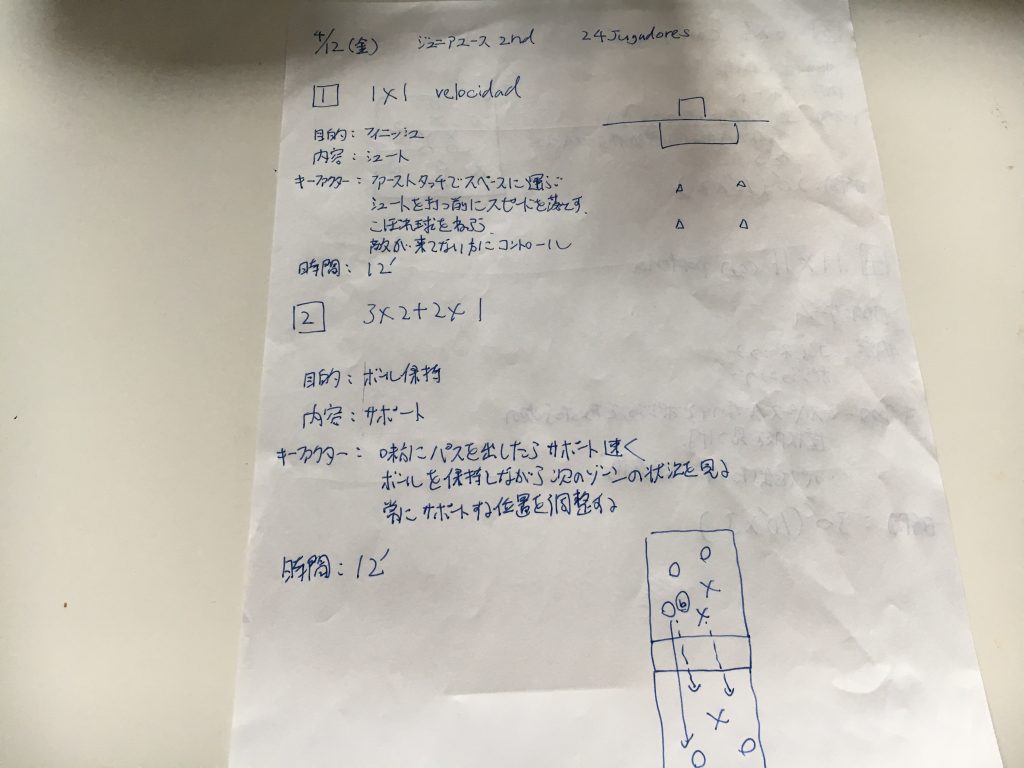 4/12(金) ジュニアユース 2nd 24 Jugadores
1 1×1 velocidad
目的：フィニッシュ
内容：シュート
キーファクター：ファーストタッチでスペースに運ぶ
シュートを打つ前にスピードを落とす
こぼれ球をねらう
敵が来てない方にコントロール
時間：12′
2 3×2+2×1
目的：ボール保持
内容：サポート
キーファクター：味方にパスを出したらサポート速く
ボールを保持しながら次のゾーンの状況を見る
常にサポートする位置を調整する
時間：12′